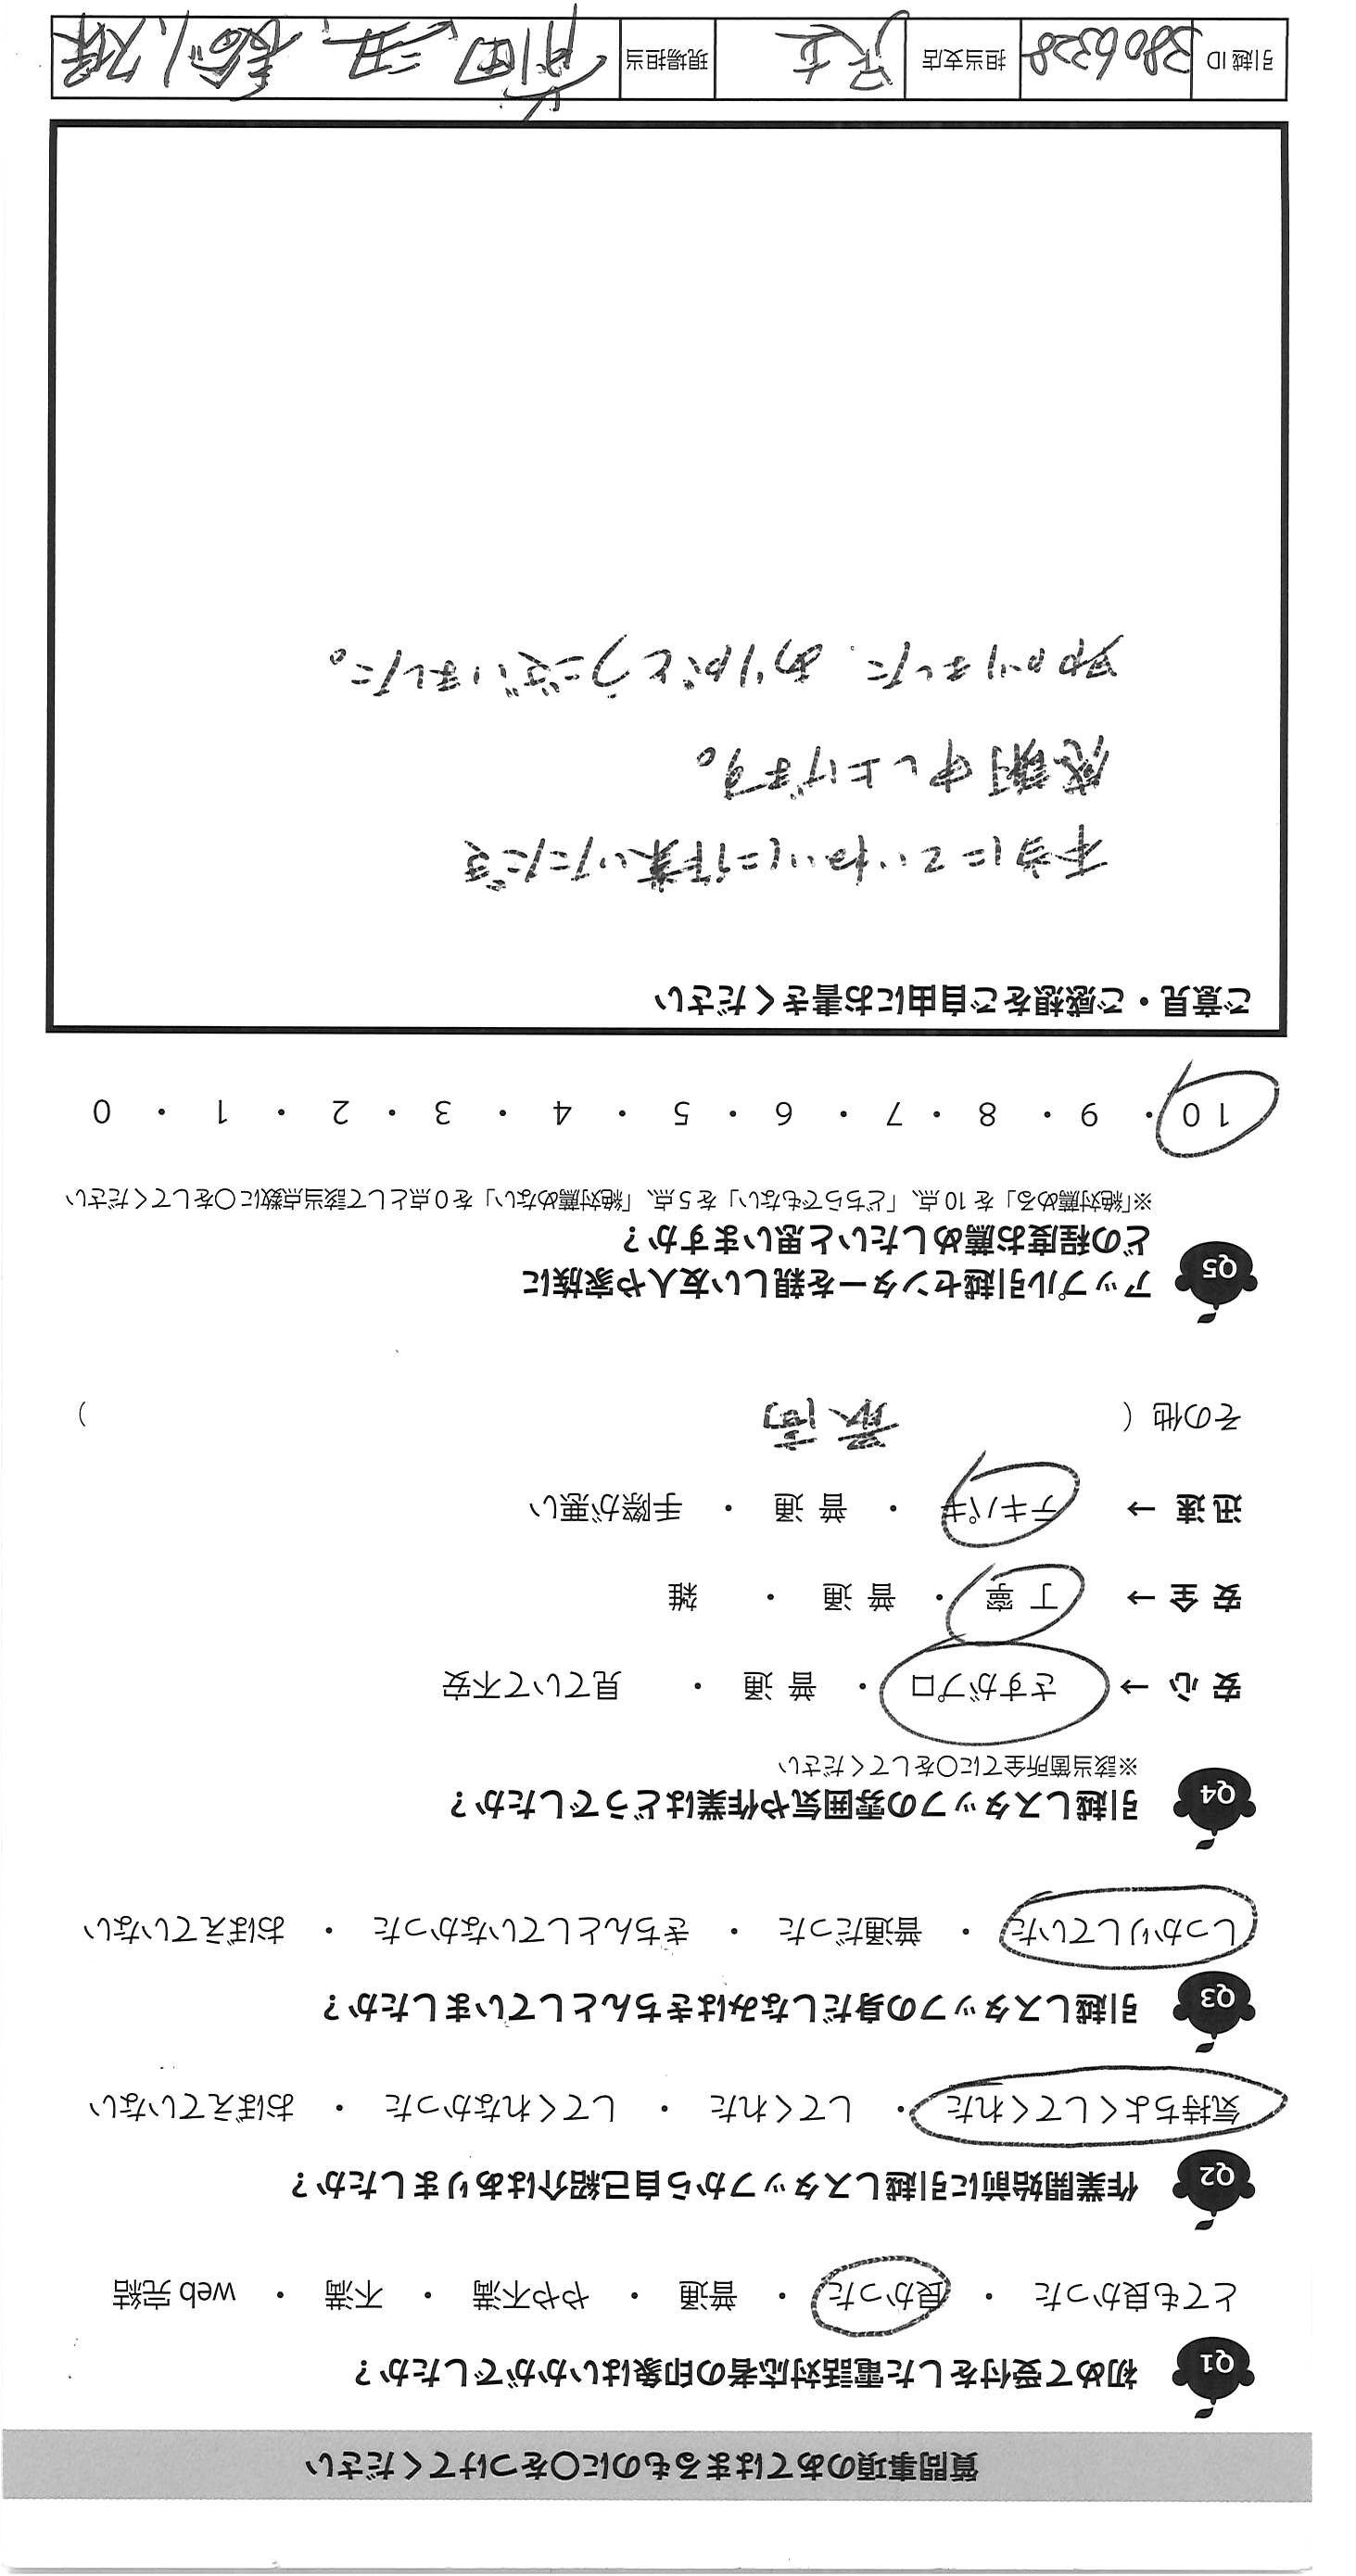 質問事項のあてはまるものに〇をつけてください
Q1 初めて受付をした電話対応者の印象はいかがでしたか？
とても良かった ・ 良かった ・ 普通 ・ やや不満 ・ 不満 ・ web 完結
Q2 作業開始前に引越しスタッフから自己紹介はありましたか？
気持ちよくしてくれた ・ してくれた ・ してくれなかった ・ おぼえていない
Q3 引越しスタッフの身だしなみはきちんとしていましたか？
しっかりしていた ・ 普通だった ・ きちんとしていなかった ・ おぼえていない
Q4 引越しスタッフの雰囲気や作業はどうでしたか？
※該当箇所全てに〇をしてください
安 心 → さすがプロ ・ 普 通 ・ 見ていて不安
安 全 → 丁 寧 ・ 普 通 ・ 雑
迅 速 → テキパキ ・ 普 通 ・ 手際が悪い
その他（ 最高 ）
Q5 アップル引越センターを親しい友人や家族に
どの程度お薦めしたいと思いますか？
※「絶対薦める」を 10 点、「どちらでもない」を 5 点、「絶対薦めない」を 0 点として該当点数に〇をしてください
10 ・ 9 ・ 8 ・ 7 ・ 6 ・ 5 ・ 4 ・ 3 ・ 2 ・ 1 ・ 0
ご意見・ご感想をご自由にお書きください
本当にていねいに作業いただき
感謝申し上げます。
助かりました、ありがとうございました。
引越 ID 3806328 担当支店 現場担当 前田